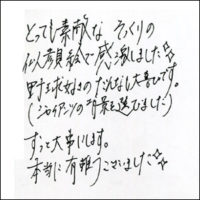 とっても素敵な そっくりの
似顔絵で感激しました☆
野球好きのだんなも大喜びです。
(ジャイアンツの背景を選びました)
ずっと大事にします。
本当に有難うございました☆